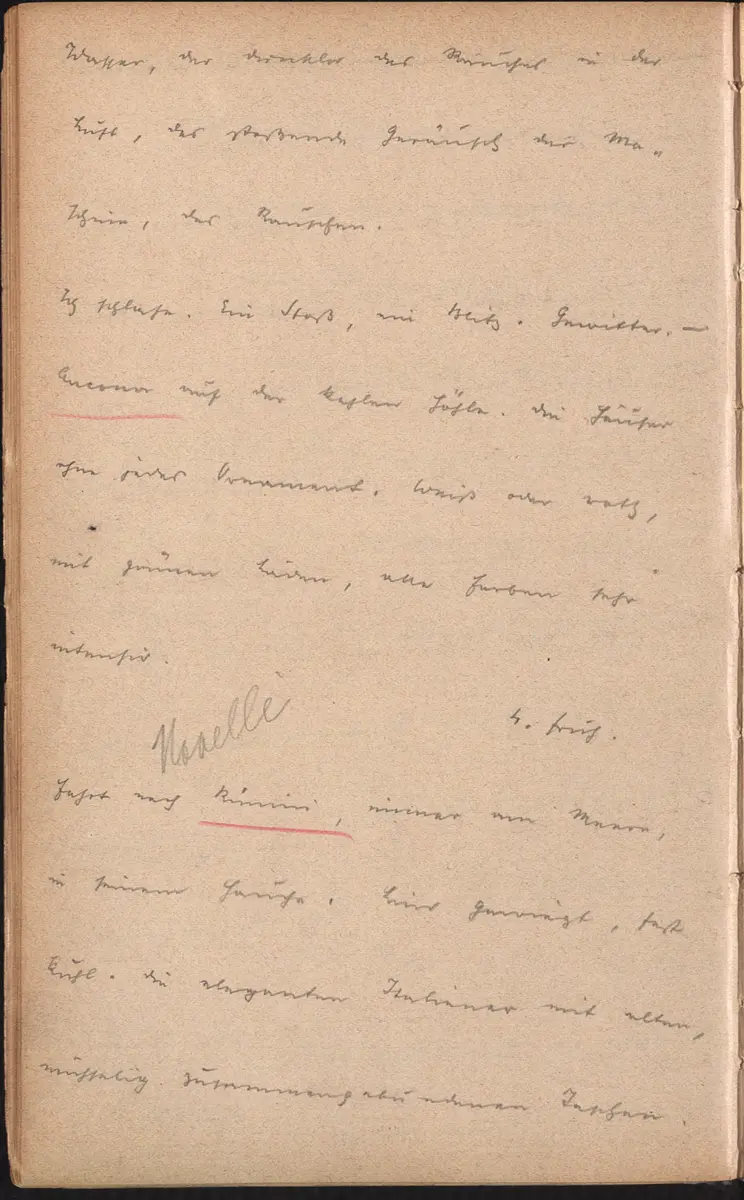 Wasser, der Direktor des Rauches in der
Luft, das stoßende Geräusch der Ma-
schine, das Rauschen.
Ich schlafe. Ein Stoß, ein Blitz. Gewitter. –
Ancona auf der kahlen Höhle. Die Häuser
ohne jedes Ornament. Weiß oder roth,
mit grünen Läden, alle Farben sehr
intensiv.
4. früh.
Novelle
Fahrt nach Rimini, immer am Meere,
in seinem Hauche. Lind gewiegt, fast
kühl. Die eleganten Italiener mit alten,
mühselig zusammengebundenen Taschen.